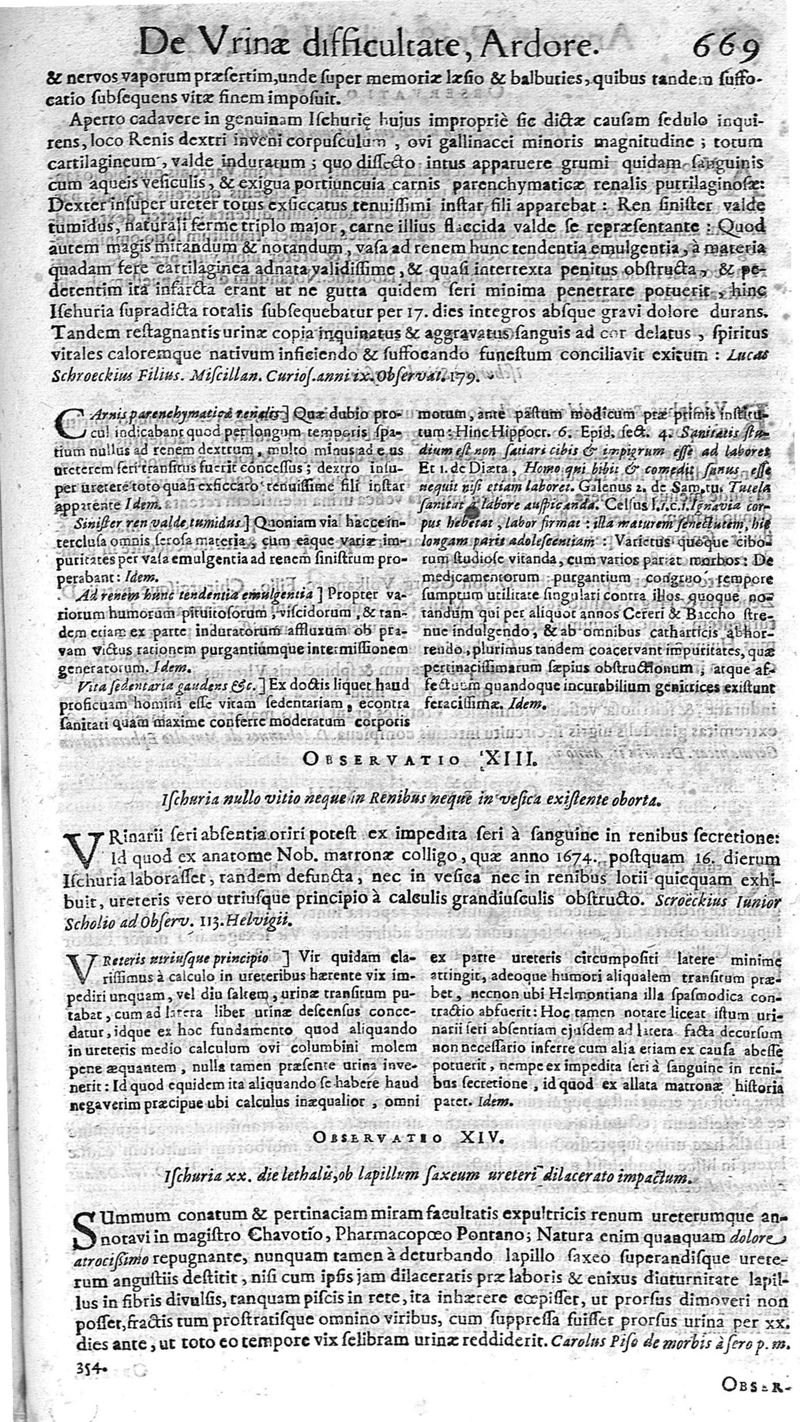 De Vrinæ difficultate, Ardore. 669
& nervos vaporum præsertim, unde super memoriæ læsio & balbuties, quibus tandem suffo-
catio subsequens vitæ finem imposuit.
Aperto cadavere in genuinam Ischurię hujus impropriè sic dictæ causam sedulo inqui-
rens, loco Renis dextri inveni corpusculum, ovi gallinacei minoris magnitudine; totum
cartilagineum, valde induratum; quo dissecto intus apparuere grumi quidam sanguinis
cum aqueis vesiculis, & exigua portiuncula carnis parenchymaticæ renalis putrilaginosæ:
Dexter insuper ureter totus exsiccatus tenuissimi instar fili apparebat: Ren sinister valde
tumidus, naturali ferme triplo major, carne illius flaccida valde se repræsentante: Quod
autem magis mirandum & notandum, vasa ad renem hunc tendentia emulgentia, à materia
quadam fere cartilaginea adnata validissime, & quasi intertexta penitus obstructa, & pe-
detentim ita infarcta erant ut ne gutta quidem seri minima penetrare potuerit, hinc
Ischuria supradicta totalis subsequebatur per 17. dies integros absque gravi dolore durans.
Tandem restagnantis urinæ copia inquinatus & aggravatus sanguis ad cor delatus, spiritus
vitales caloremque nativum inficiendo & suffocando funestum conciliavit exitum: Lucas
Schroeckius Filius. Miscillan. Curios. anni ix. Observat. 179.
CArnis parenchymaticæ renalis] Quæ dubio pro-
cul indicabant quod per longum temporis spa-
tium nullus ad renem dextrum, multo minus ad ejus
ureterem seri transitus fuerit concessus; dextro insu-
per uretere toto quasi exsiccato tenuissime fili instar
apparente Idem.
Sinister ren valde tumidus] Quoniam via hacce in-
terclusa omnis serosa materia, cum eaque variæ im-
puritates per vasa emulgentia ad renem sinistrum pro-
perabant: Idem.
Ad renem hunc tendentia emulgentia] Propter va-
riorum humorum pituitosorum, viscidorum, & tan-
dem etiam ex parte induratorum affluxum ob pra-
vam victus rationem purgantiumque intermissionem
generatorum. Idem.
Vita sedentaria gaudens &c.] Ex doctis liquet haud
proficuam homini esse vitam sedentariam, econtra
sanitati quam maxime conferre moderatum corporis
motum, ante pastum modicum præ primis institu-
tum: Hinc Hippocr. 6. Epid. sect. 4. Sanitatis stu-
dium est non satiari cibis & impigrum esse ad labores
Et 1. de Diæta, Homo qui bibit & comedit sanus esse
nequit nisi etiam laboret. Galenus 2. de San. tu. Tutela
sanitatis à labore auspicanda. Celsus l.1.c.1. Ignavia cor-
pus hebetat, labor firmat: illa maturem senectutem, hic
longam paris adolescentiam: Varietas quoque cibo-
rum studiose vitanda, cum varios pariat morbos: De
medicamentorum purgantium congruo tempore
sumptum utilitate singulari contra illos quoque no-
tandum qui per aliquot annos Cereri & Baccho stre-
nue indulgendo, & ab omnibus catharticis abhor-
rendo, plurimus tandem coacervant impuritates, quæ
pertinacissimarum sæpius obstructionum, atque af-
fectuum quandoque incurabilium genitrices existunt
feracissimæ. Idem.
OBSERVATIO XIII.
Ischuria nullo vitio neque in Renibus neque in vesica existente oborta.
VRinarii seri absentia oriri potest ex impedita seri à sanguine in renibus secretione:
Id quod ex anatome Nob. matronæ colligo, quæ anno 1674. postquam 16. dierum
Ischuria laborasset, tandem defuncta, nec in vesica nec in renibus lotii quicquam exhi-
buit, ureteris vero utriusque principio à calculis grandiusculis obstructo. Scroeckius Iunior
Scholio ad Observ. 113. Helvigii.
VReteris utriusque principio] Vir quidam cla-
rissimus à calculo in ureteribus hærente vix im-
pediri unquam, vel diu saltem, urinæ transitum pu-
tabat, cum ad latera liber urinæ descensus conce-
datur, idque ex hoc fundamento quod aliquando
in ureteris medio calculum ovi columbini molem
pene æquantem, nulla tamen præsente urina inve-
nerit: Id quod equidem ita aliquando se habere haud
negaverim præcipue ubi calculus inæqualior, omni
ex parte ureteris circumpositi latere minime
attingit, adeoque humori aliqualem transitum præ-
bet, necnon ubi Helmontiana illa spasmodica con-
tractio abfuerit: Hoc tamen notare liceat istum uri-
narii seri absentiam ejusdem ad latera facta decursum
non necessario inferre cum alia etiam ex causa abesse
potuerit, nempe ex impedita seri à sanguine in reni-
bus secretione, id quod ex allata matronæ historia
patet. Idem.
OBSERVATIO XIV.
Ischuria xx. die lethalis, ob lapillum saxeum ureteri dilacerato impactum.
SUmmum conatum & pertinaciam miram facultatis expultricis renum ureterumque an-
notavi in magistro Chavotio, Pharmacopœo Pontano; Natura enim quanquam dolore
atrocissimo repugnante, nunquam tamen à deturbando lapillo saxeo superandisque urete-
rum angustiis destitit, nisi cum ipsis jam dilaceratis præ laboris & enixus diuturnitate lapil-
lus in fibris divulsis, tanquam piscis in rete, ita inhærere cœpisset, ut prorsus dimoveri non
posset, fractis tum prostratisque omnino viribus, cum suppressa fuisset prorsus urina per xx.
dies ante, ut toto eo tempore vix selibram urinæ reddiderit. Carolus Piso de morbis à sero p. m.
354.
OBSER-